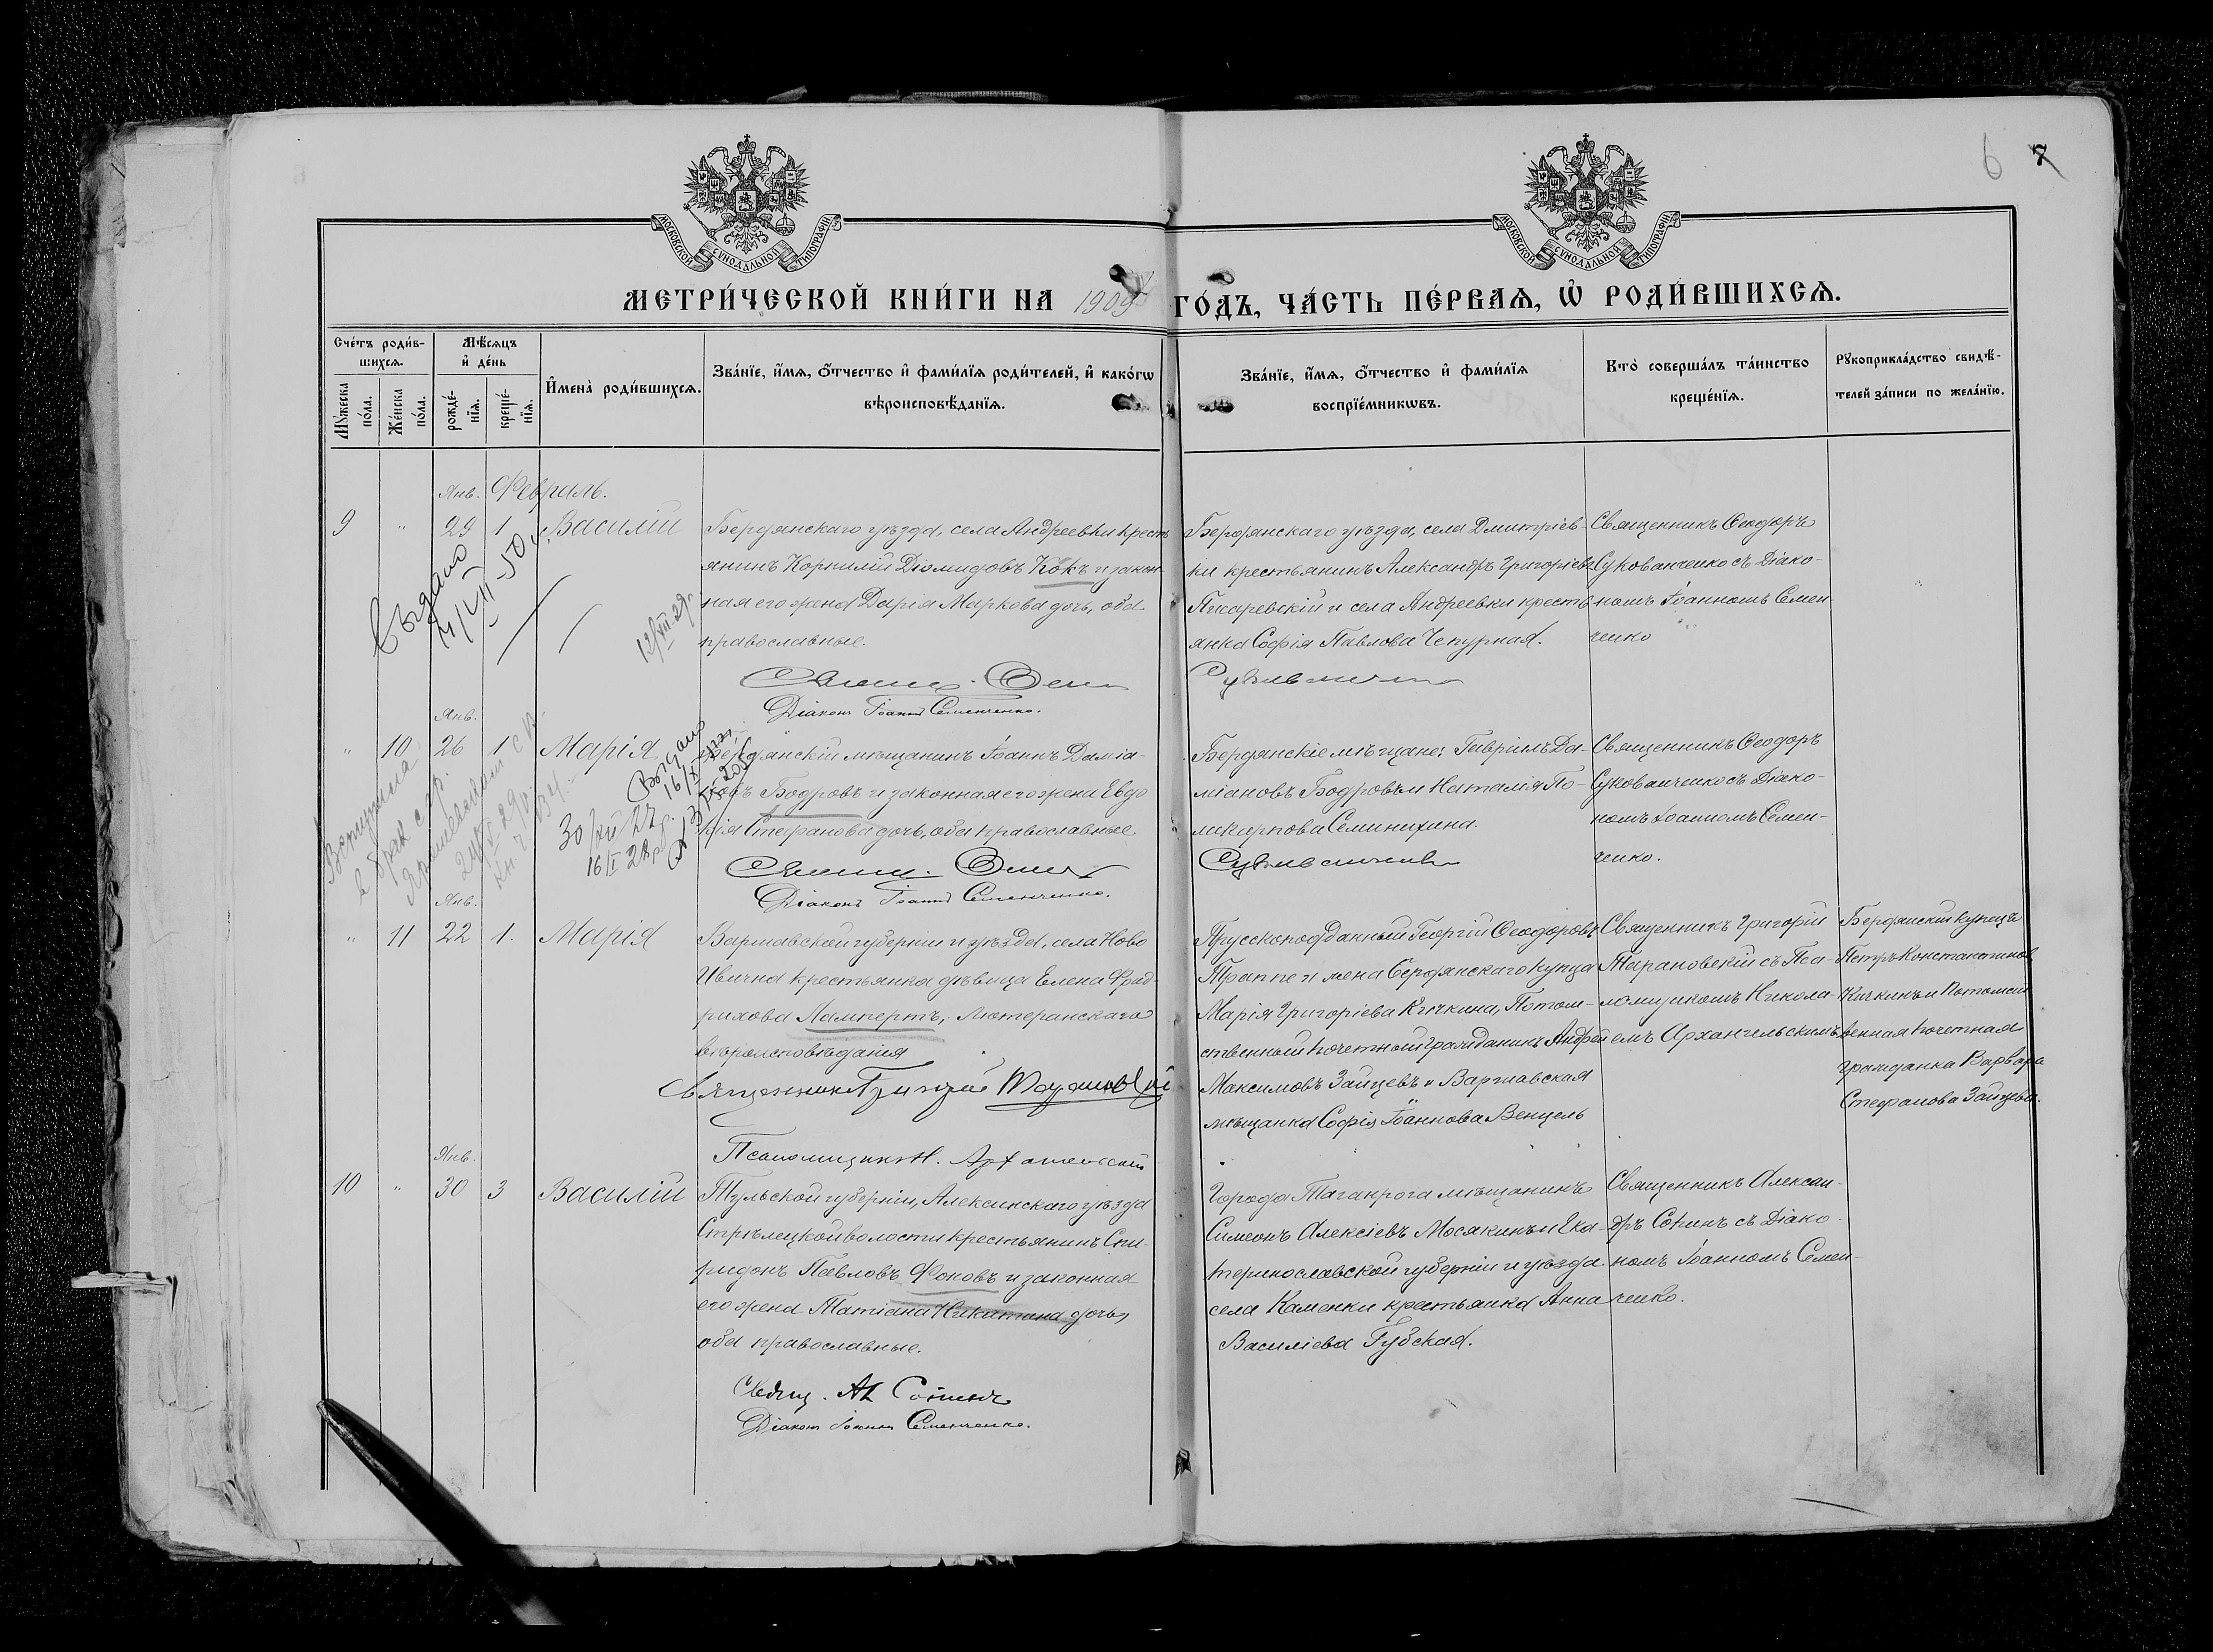 6 7
МОСКОВСКОЙ СѴНОДАЛЬНОЙ ТИПОГРАФІИ
МОСКОВСКОЙ СѴНОДАЛЬНОЙ ТИПОГРАФІИ
МЕТРИ́ЧЕСКОЙ КНИ́ГИ НА 1909 ГО́ДЪ, ЧА́СТЬ ПЕ́РВАѦ, Ѡ҆ РОДИ́ВШИХСѦ.
Сче́тъ роди́в-
шихсѧ.
Мꙋ́жеска
по́ла.
Же́нска
по́ла.
Мѣ́сѧцъ
и҆ де́нь
рожде́-
нїѧ.
креще́-
нїѧ.
И҆мена̀ роди́вшихсѧ.
Зва́нїе, и҆́мѧ, о҆́тчество и҆ фами́лїѧ роди́телей, и҆ како́гѡ
вѣроисповѣ́данїѧ.
Зва́нїе, и҆́мѧ, о҆́тчество и҆ фами́лїѧ
воспрїе́мникѡвъ.
Кто̀ соверша́лъ та́инство
креще́нїѧ.
Рꙋкоприкла́дство свидѣ́-
телей за́писи по жела́нїю.
Янв. Февраль.
9 " 29 1. Василій
Бердянскаго уѣзда, села Андреевки кресть
янинъ Корнилій Діомидовъ Кокъ и закон-
ная его жена Дарія Маркова дочь, оба
православные.
Діаконъ Іоаннъ Семенченко.
Бердянскаго уѣзда, села Дмитріев-
ки крестьянинъ Александръ Григоріевъ
Писаревскій и села Андреевки кресть
янка Софія Павлова Чепурная.
Священникъ Ѳеодоръ
Сукованченко съ Діако-
номъ Іоанномъ Семен-
ченко
Выдано
12/VII 29 г.
Янв.
" 10 26 1 Марія
Бердянскій мѣщанинъ Іоаннъ Даміа-
новъ Бодровъ и законная его жена Евдо
кія Стефанова дочь, оба православные
Діаконъ Іоаннъ Семенченко.
Бердянскіе мѣщане: Гавріилъ Да-
міановъ Бодровъ и Наталія По-
ликарпова Семинихина.
Священникъ Ѳеодоръ
Сукованченко съ Діако-
номъ Іоанномъ Семен-
ченко.
Вступила
в брак с гр.
Выдано
30/XII 27 г.
Янв.
" 11 22 1. Марія
Варшавской губерніи и уѣзда, села Ново
Ивична крестьянка дѣвица Елена Фрид-
рихова Лампертъ, Лютеранскаго
вѣроисповѣданія
Священник Григорій Тарановскій
Псаломщик Н. Архангельскій
Прусскоподданный Георгій Ѳеодоровъ
Траппе и жена Бердянскаго купца
Марія Григоріева Кичкина, Потом-
ственный почетный гражданинъ Андрей
Максимовъ Зайцевъ и Варшавская
мѣщанка Софія Іоаннова Венцель
Священникъ Григорій
Тарановскій съ Пса-
ломщикомъ Никола-
емъ Архангельскимъ
Бердянскій купецъ
Петръ Константинов
Кичкинъ и Потомст
венная почетная
гражданка Варвара
Стефанова Зайцева.
Янв.
10 " 30 3 Василій
Тульской губерніи, Алексинскаго уѣзда
Стрѣлецкой волости крестьянинъ Спи-
ридонъ Павловъ Фоковъ и законная
его жена Татіана Никитина дочь,
оба православные.
Свящ. Ал Сопинъ
Діаконъ Іоаннъ Семенченко.
Города Таганрога мѣщанинъ
Симеонъ Алексіевъ Мосякинъ и Ека-
теринославской губерніи и уѣзда
села Каменки крестьянка Анна
Василіева Губская.
Священникъ Алексан-
дръ Сопинъ съ Діако-
номъ Іоанномъ Семен-
ченко.